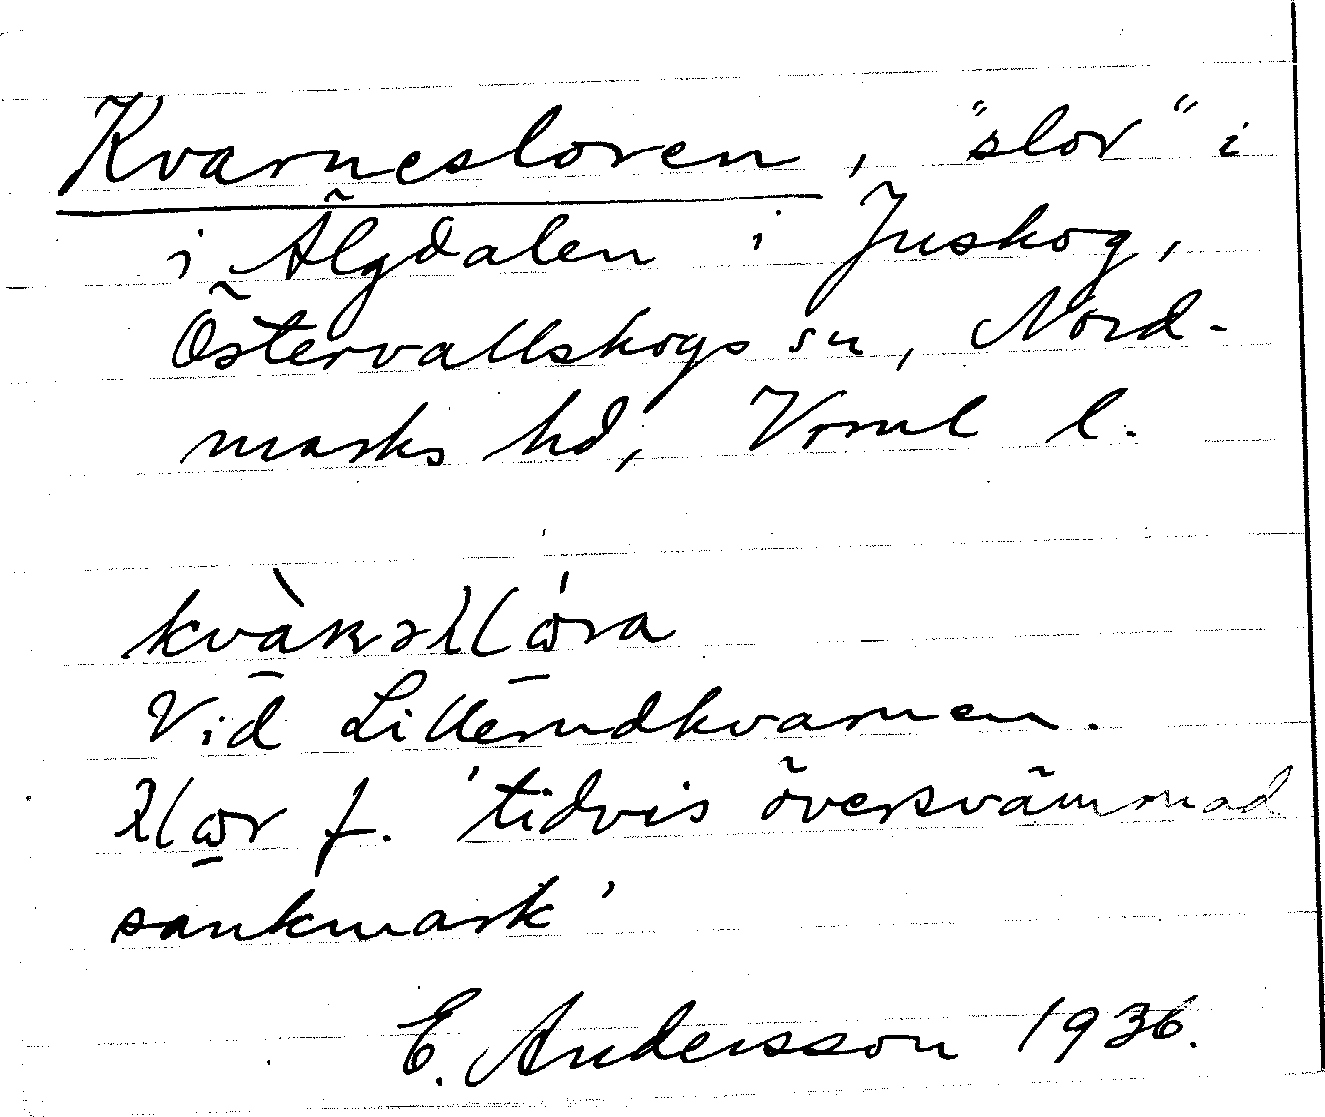 Kvarnesloren, "slor" i
i Älgdalen i Juskog,
Östervallskogs sn, Nord-
marks hd, Vrml l.
Vid Lillerudkvarnen.
f. 'tidvis översvämmad
sankmark'
E. Andersson 1936.